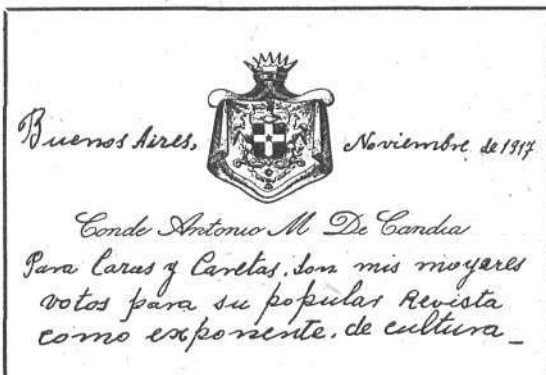 Buenos Aires, Noviembre de 1917
Conde Antonio M De Candia
Para Caras y Caretas. son mis mayores
votos para su popular Revista
como exponente. de cultura_